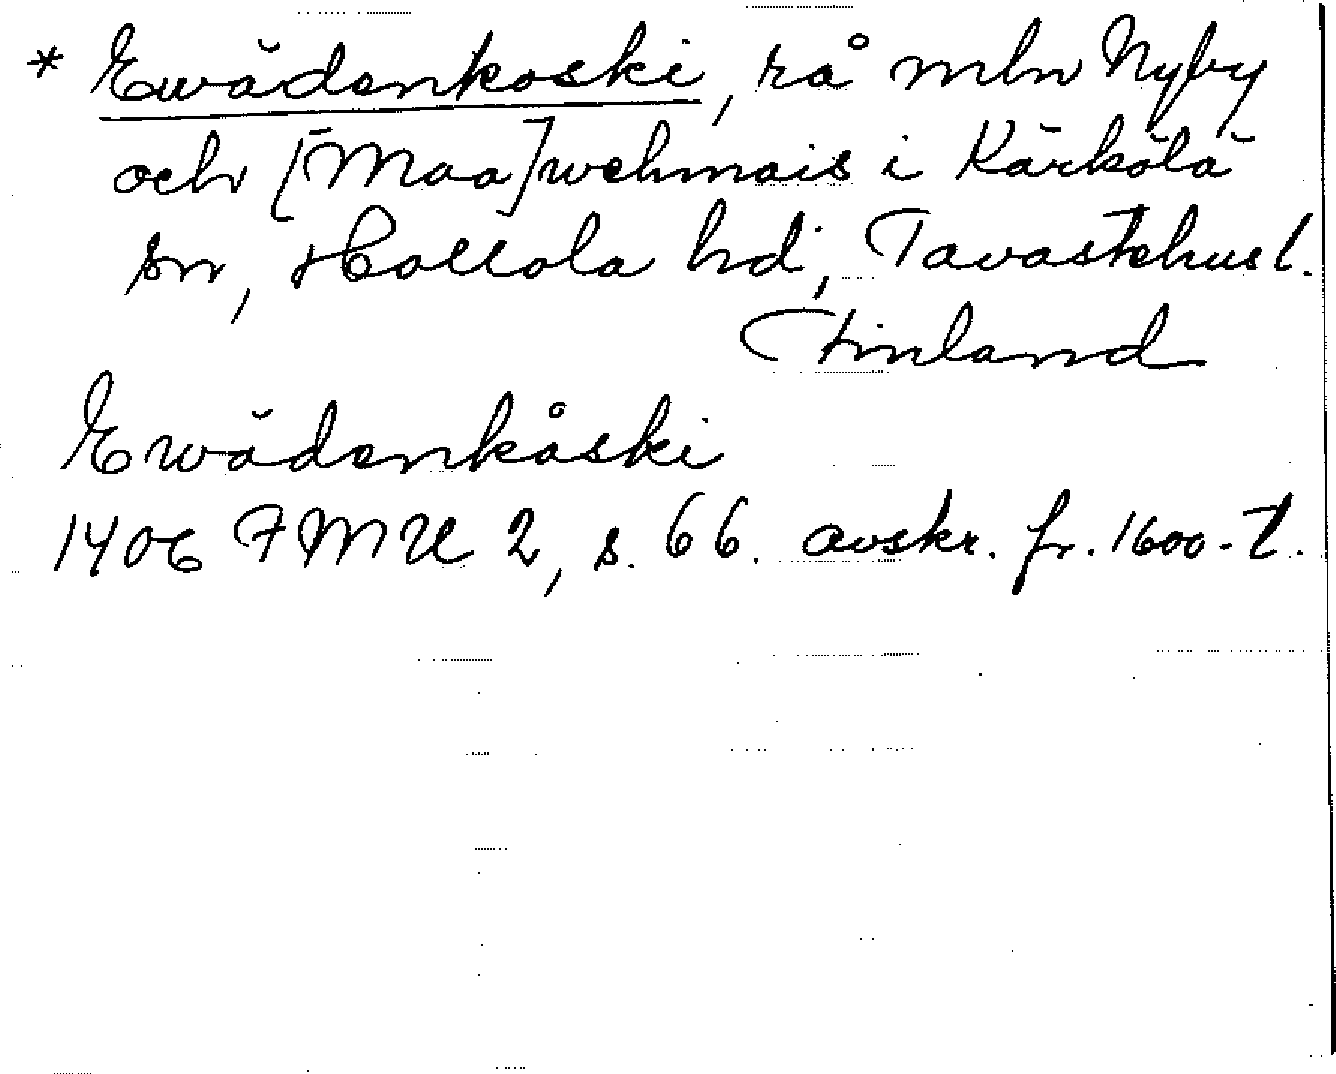 * Ewädenkoski, rå mln Nyby
och [Maa]wehmais i Kärkölä
sn, Hollola hd, Tavastehus l.
Finland
Ewädenkåski
1406 FMU 2, s. 66. avskr. fr. 1600-t.